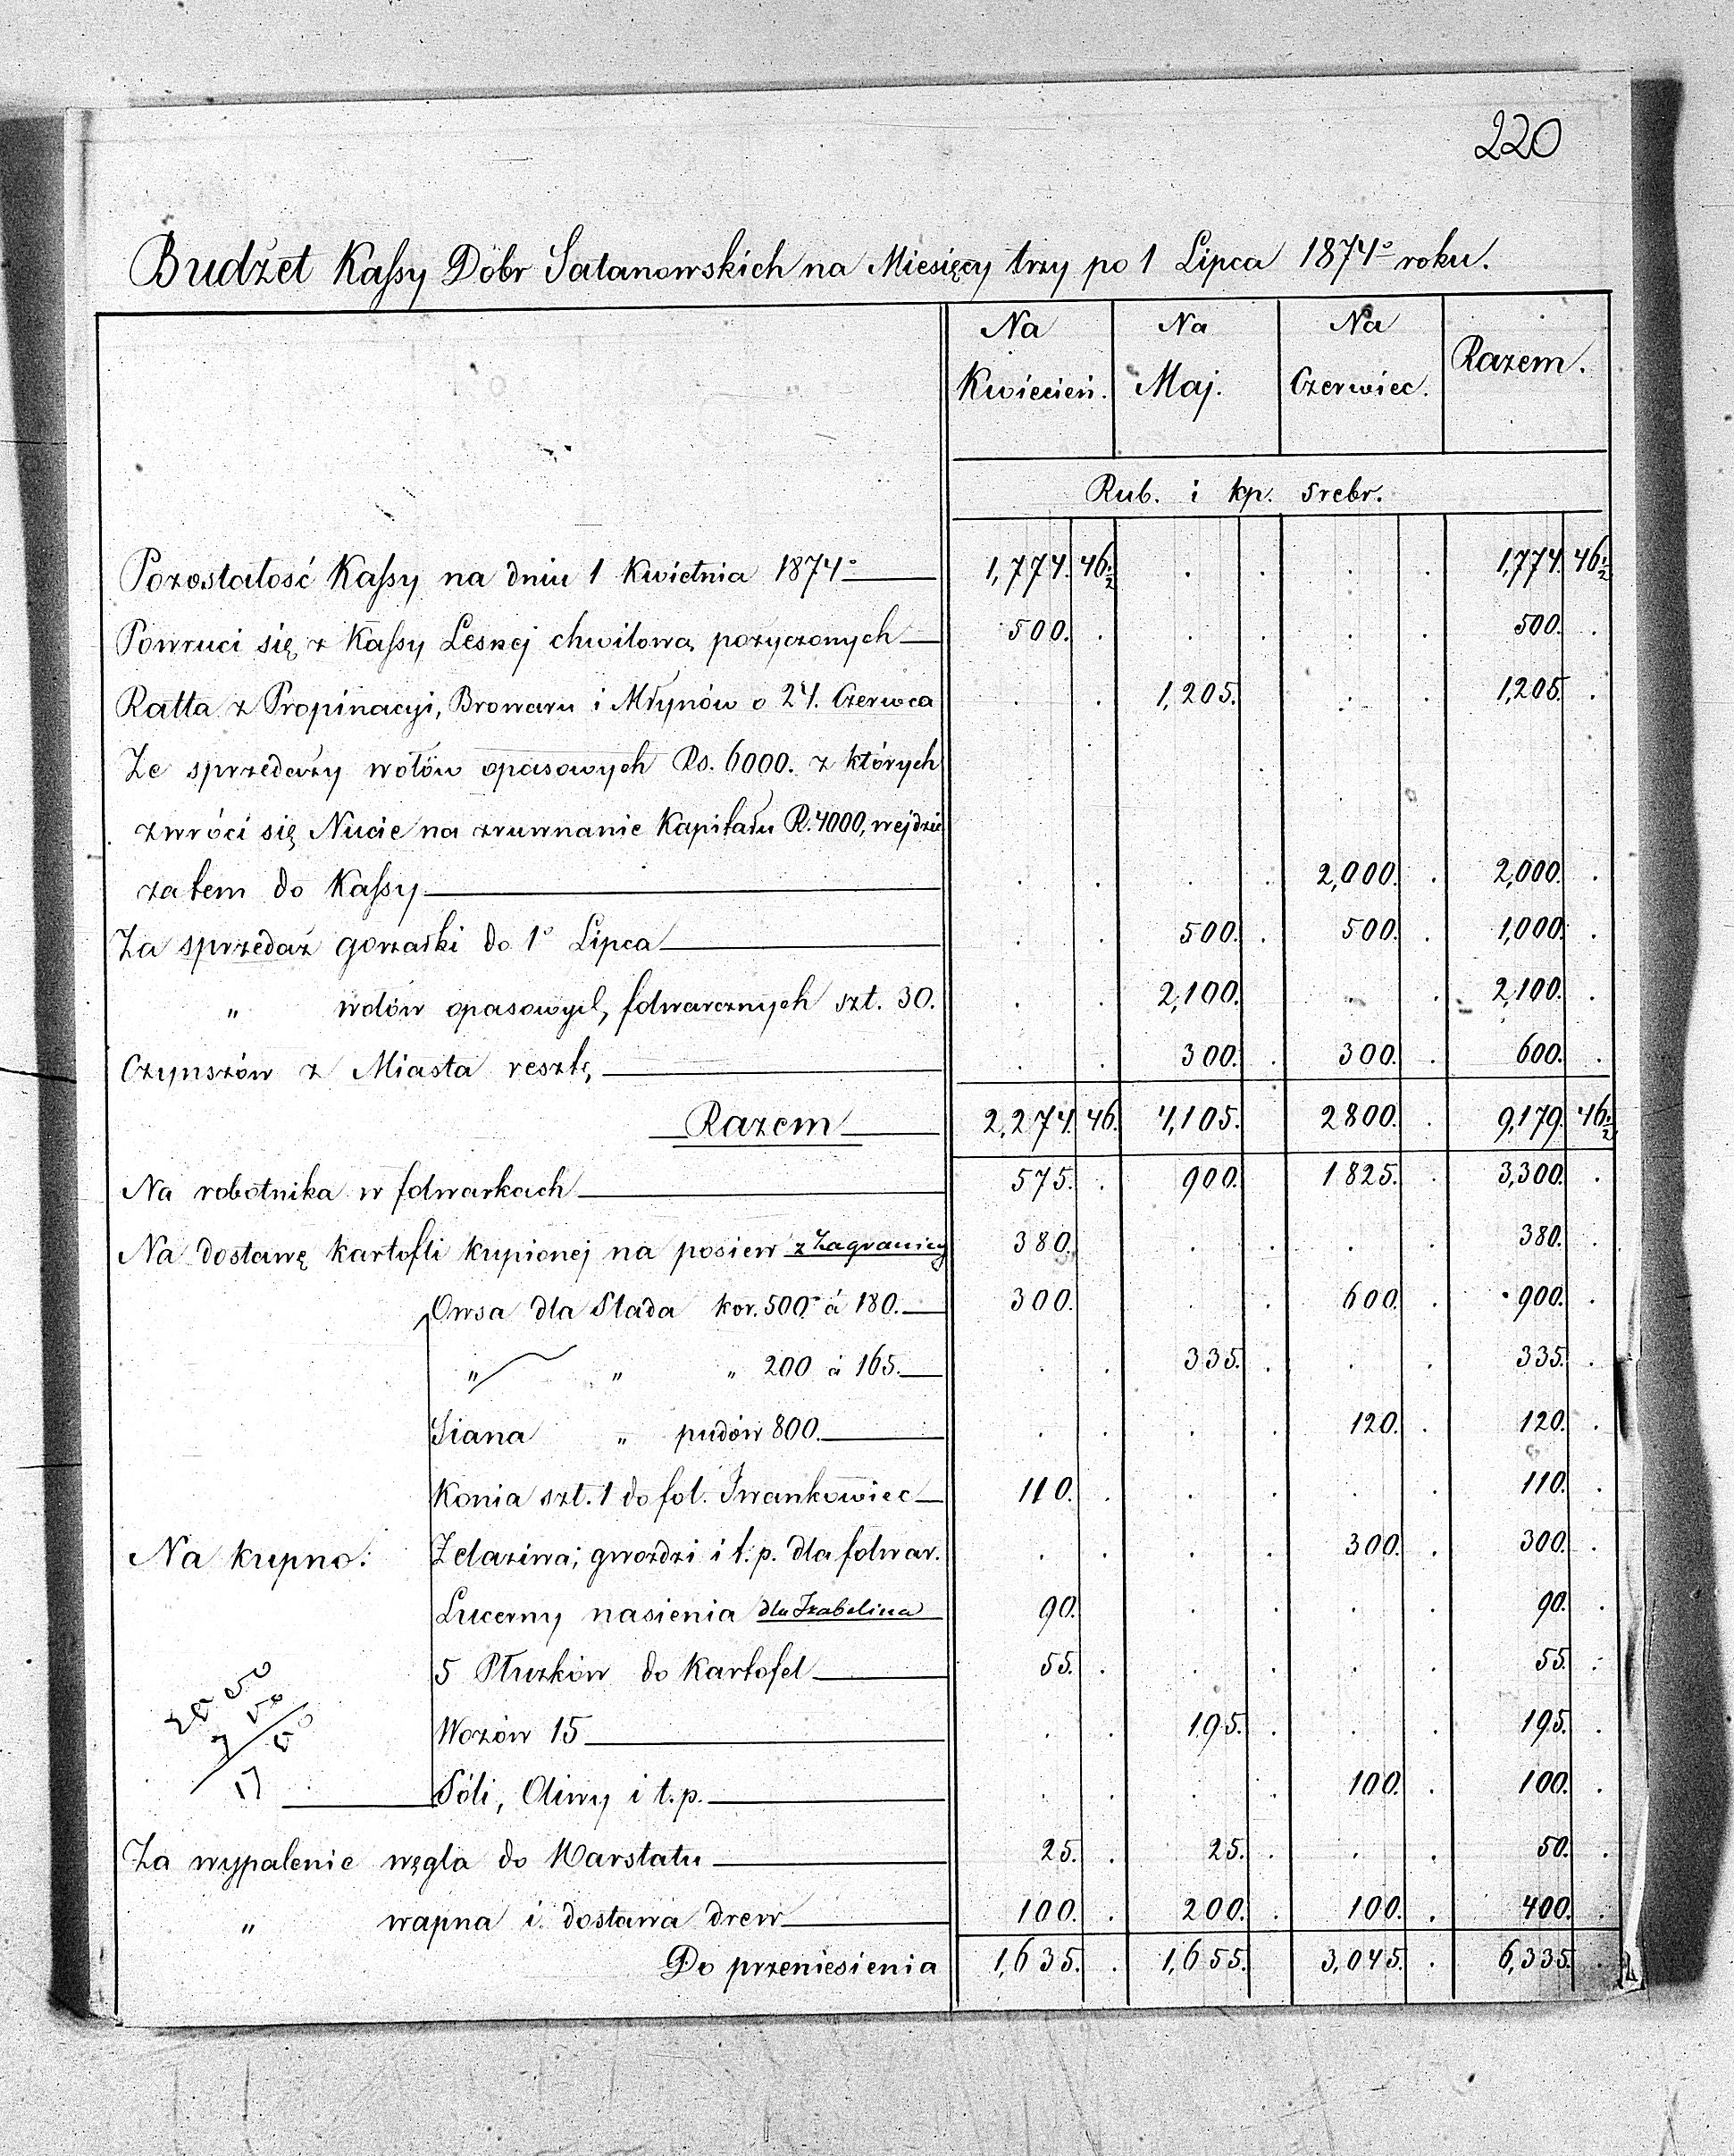 220
Budżet Kassy Dóbr Satanowskich na Miesięcy trzy po 1 Lipca 1874° roku.
Na Kwiecień. Na Maj. Na Czerwiec. Razem.
Rub. i kp. srebr.
Pozostałość Kassy na dniu 1 Kwietnia 1874° 1,774. 46½ . . . . 1,774. 46½
Powruci się z Kassy Lesnej chwilowa pożyczonych 500. . . . . . 500. .
Ratta z Propinacyi, Browaru i Młynów o 24. Czerwca . . 1,205. . . 1,205. .
Ze sprzedaży wołów opasowych Rs. 6000. z których
zwróci się Nucie na zruwnanie Kapitału R. 4000, wejdzie
zatem do Kassy . . . . 2,000. . 2,000. .
Za sprzedaż gorzałki do 1° Lipca . . 500. . 500. . 1,000. .
" wołów opasowych, folwarcznych szt. 30. . . 2,100. . . 2,100. .
Czynszów z Miasta resztę . . 300. . 300. . 600. .
Razem 2,274. 46. 4,105. 2800. . 9,179. 46½
Na robotnika w folwarkach 575. . 900. 1825. . 3,300. .
Na dostawę kartofli kupionej na posiew z Zagranicy 380. . . . . 380. .
Owsa dla Stada kor. 500 á 180. 300. . . 600. . 900. .
" " " 200 á 165. . . 335. . . . 335. .
Siana " pudów 800. . . . . 120. . 120. .
Konia szt. 1 do fol. Iwankowiec 110. . . . . . 110. .
Na kupno: Żelaziwa; gwoździ i t. p. dla folwar. . . . . 300. . 300. .
Lucerny nasienia dla Izabelina 90. . . . 90. .
5 Płużków do Kartofel 55. . . . . . 55. .
Wozów 15 . . 195. . . . 195. .
Sóli, Oliwy i t. p. . . . . 100. . 100. .
17
Za wypalenie węgla do Marstału 25. . 25. . . . 50. .
" wapna i dostawa drew 100. . 200. . 100. . 400. .
Do przeniesienia 1,635. . 1,655. 3,045. . 6,335. .